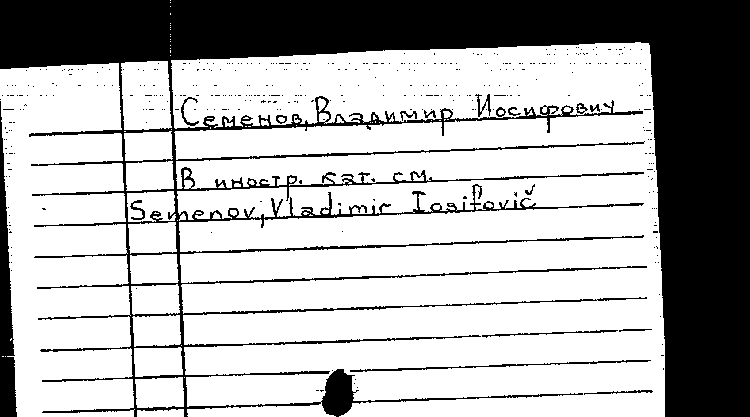 Семенов, Владимир Иосифович
В иностр. кат. см.
Semenov, Vladimir Iosifovič